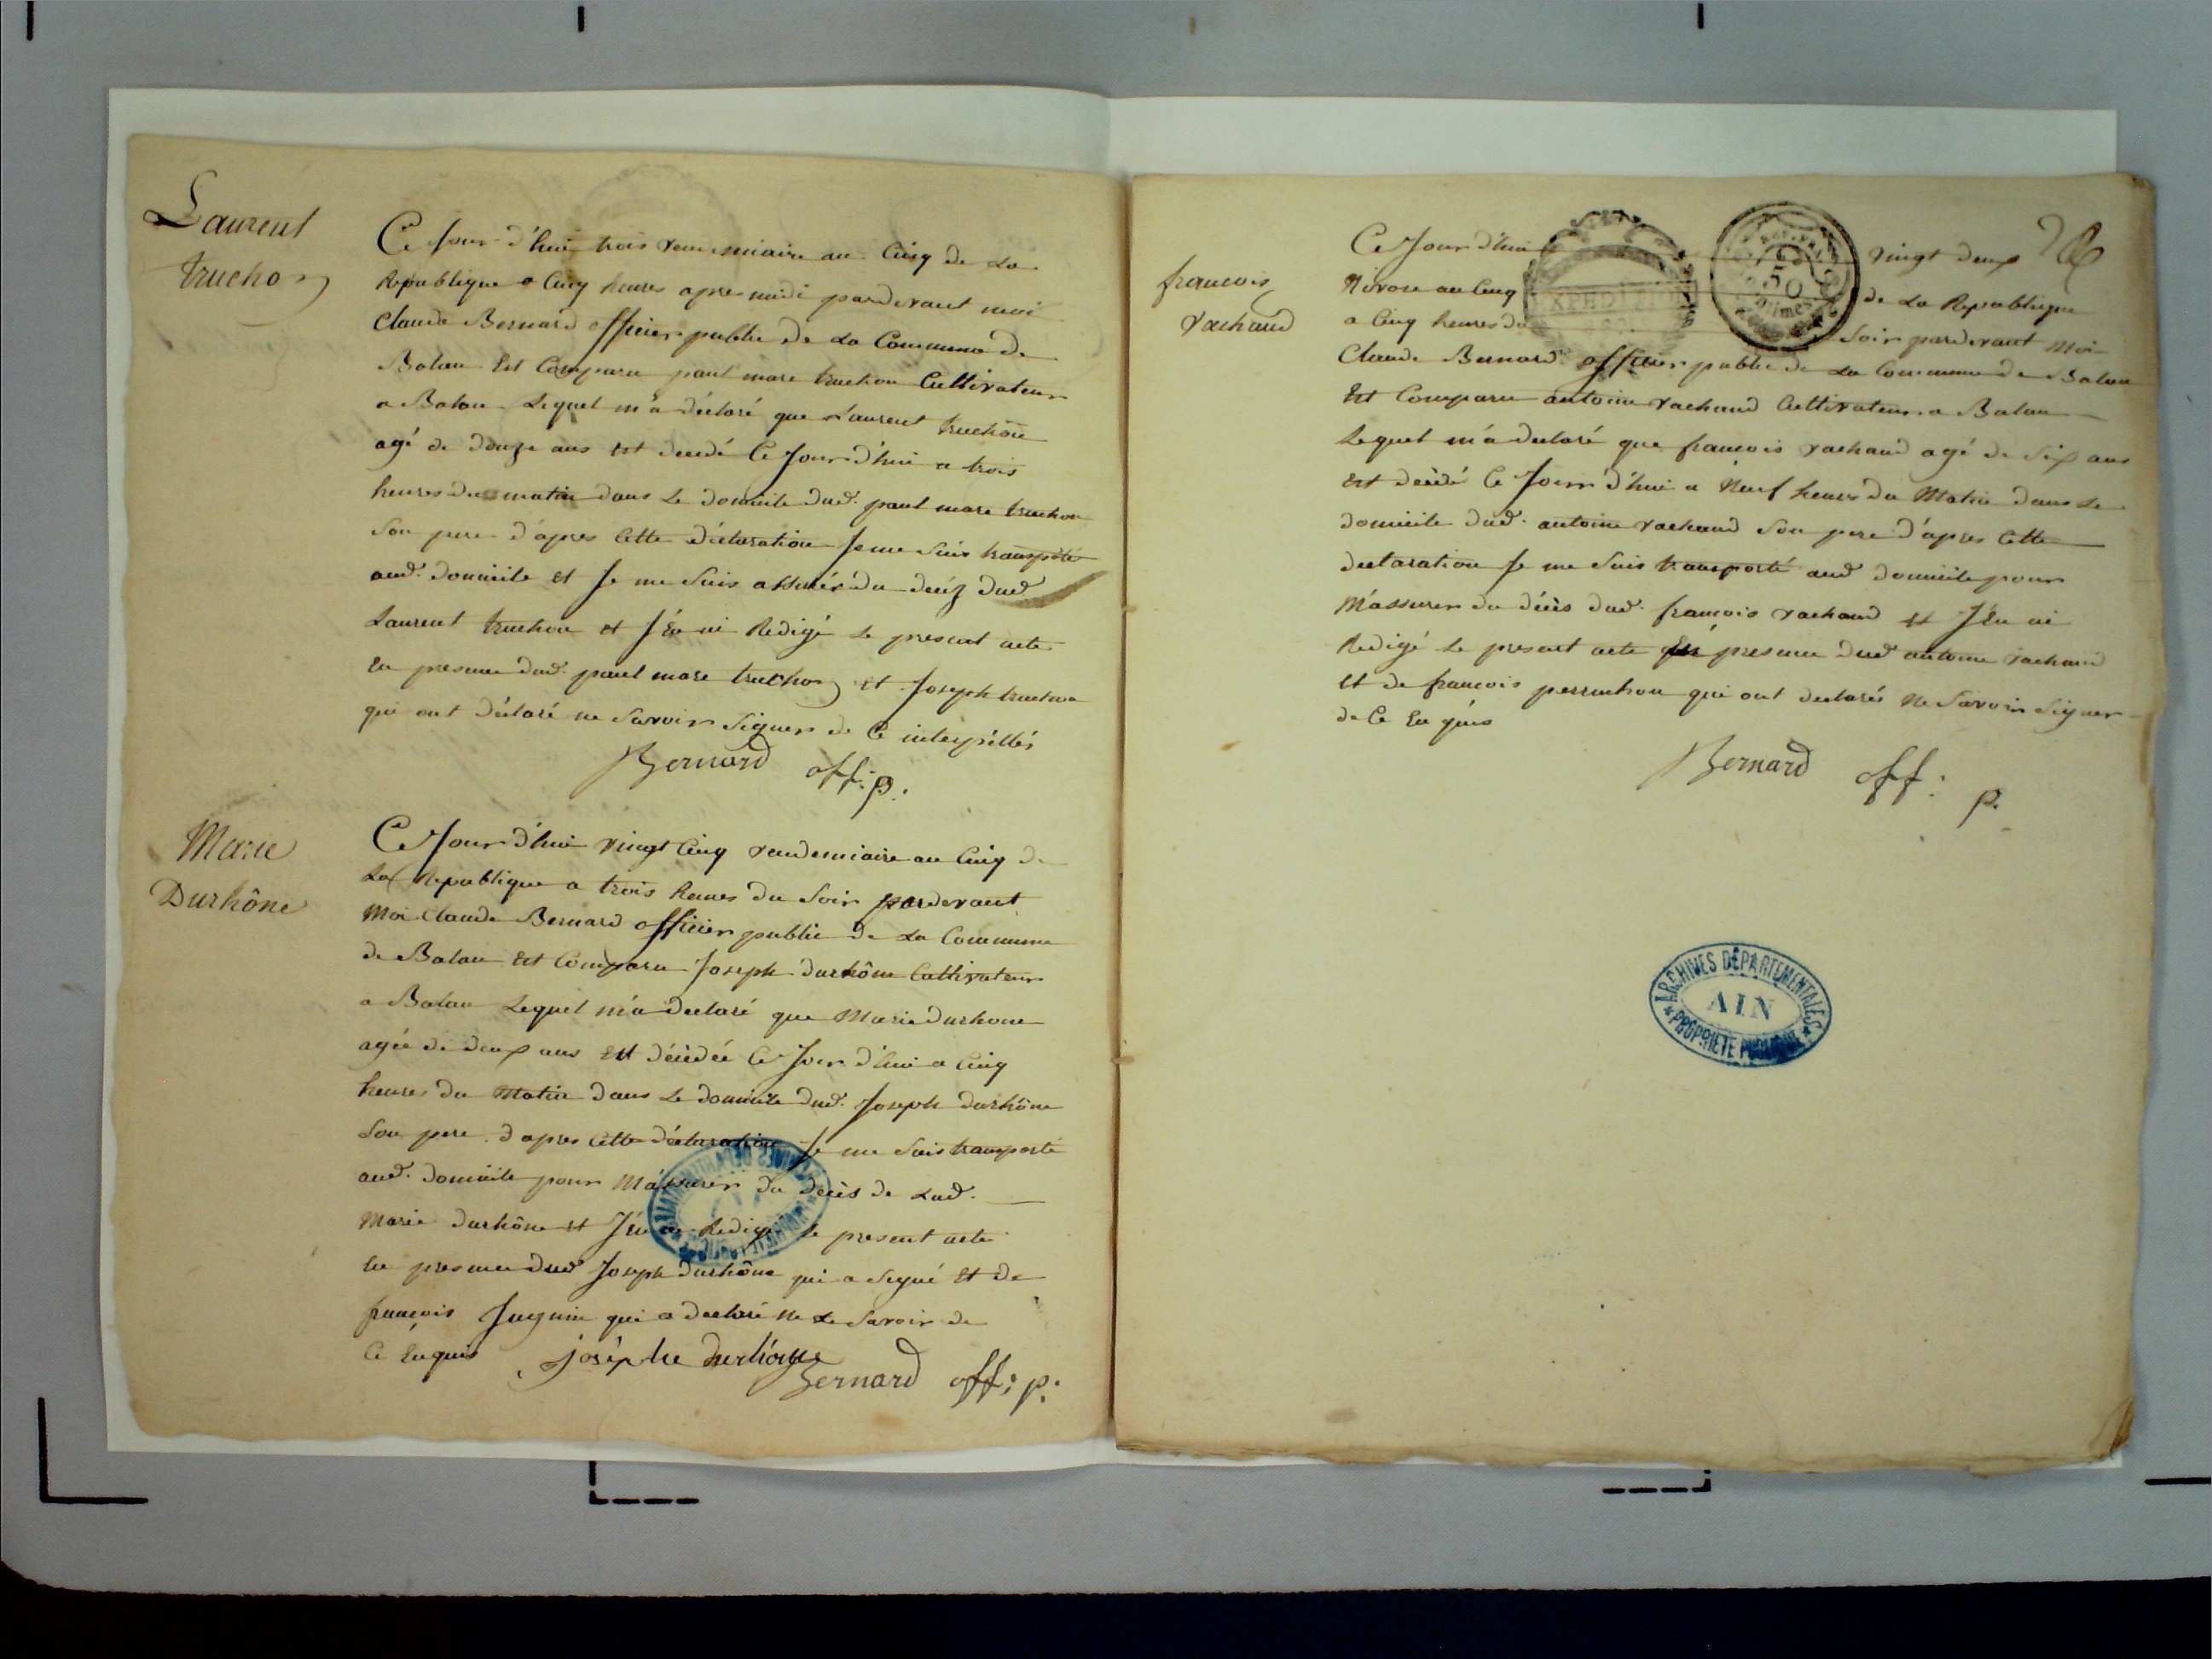 Laurent
truchon
Ce Jour d'hui trois vendemiaire an Cinq de La
Republique a Cinq heures apres midi pardevant moi
Claude Bernard officier public de La Commune de
Balan Est Comparu paul marc truchon Cultivateur
a Balan Lequel m'a déclaré que Laurent truchon
agé de douze ans est decedé Ce Jour d'hui a trois
heures du matin dans Le domicile dud. paul marc truchon
Son pere d'apres Cette déclaration Je me Suis transporté
aud. domicile et Je me Suis assuré du decéz dud.
Laurent truchon et J'En ai Redigé Le present acte
En presence dud. paul marc truchon et Joseph truchon
qui ont déclaré ne Savoir Signer de Ce interpéllés
Bernard off: p.
Marie
Durhône
Ce Jour d'hui vingt Cinq vendemiaire an Cinq de
La Republique a trois heures du Soir pardevant
Moi Claude Bernard officier public de La Commune
de Balan Est Comparu Joseph durhône Cultivateur
a Balan Lequel m'a declaré que Marie durhone
agée de deux ans Est décédée Ce Jour d'hui a Cinq
heures du Matin dans Le domicile dud. Joseph durhône
Son pere d'apres Cette déclaration Je me Suis transporté
aud. domicile pour M'assurer du decès de Lad.
Marie durhône et J'En ai Redigé Le present acte
En presence dud Joseph durhône qui a Signé Et de
françois Juguin qui a declaré ne Le Savoir de
Ce Enquis
josèphe durhône
Bernard off: p:
françois
vachaud
Ce Jour d'hui vingt deux
Nivose an Cinq de La Republique
a Cinq heures du Soir pardevant Moi
Claude Bernard officier public de La Commune de Balan
Est Comparu antoine vachaud Cultivateur a Balan
Lequel m'a declaré que françois vachaud agé de Six ans
est décédé Ce Jour d'hui a Neuf heures du Matin dans Le
domicile dud. antoine vachaud Son pere d'apres Cette
declaration Je me Suis transporté aud domicile pour
M'assurer du décès dud. françois vachaud et J'En ai
Redigé Le present acte En presence dud antoine vachaud
et de françois perruchon qui ont declarés Ne Savoir Signer
de Ce Enquis
Bernard off: p.
50
ARCHIVES DÉPARTEMENTALES
AIN
PROPRIETE PUBLIQUE